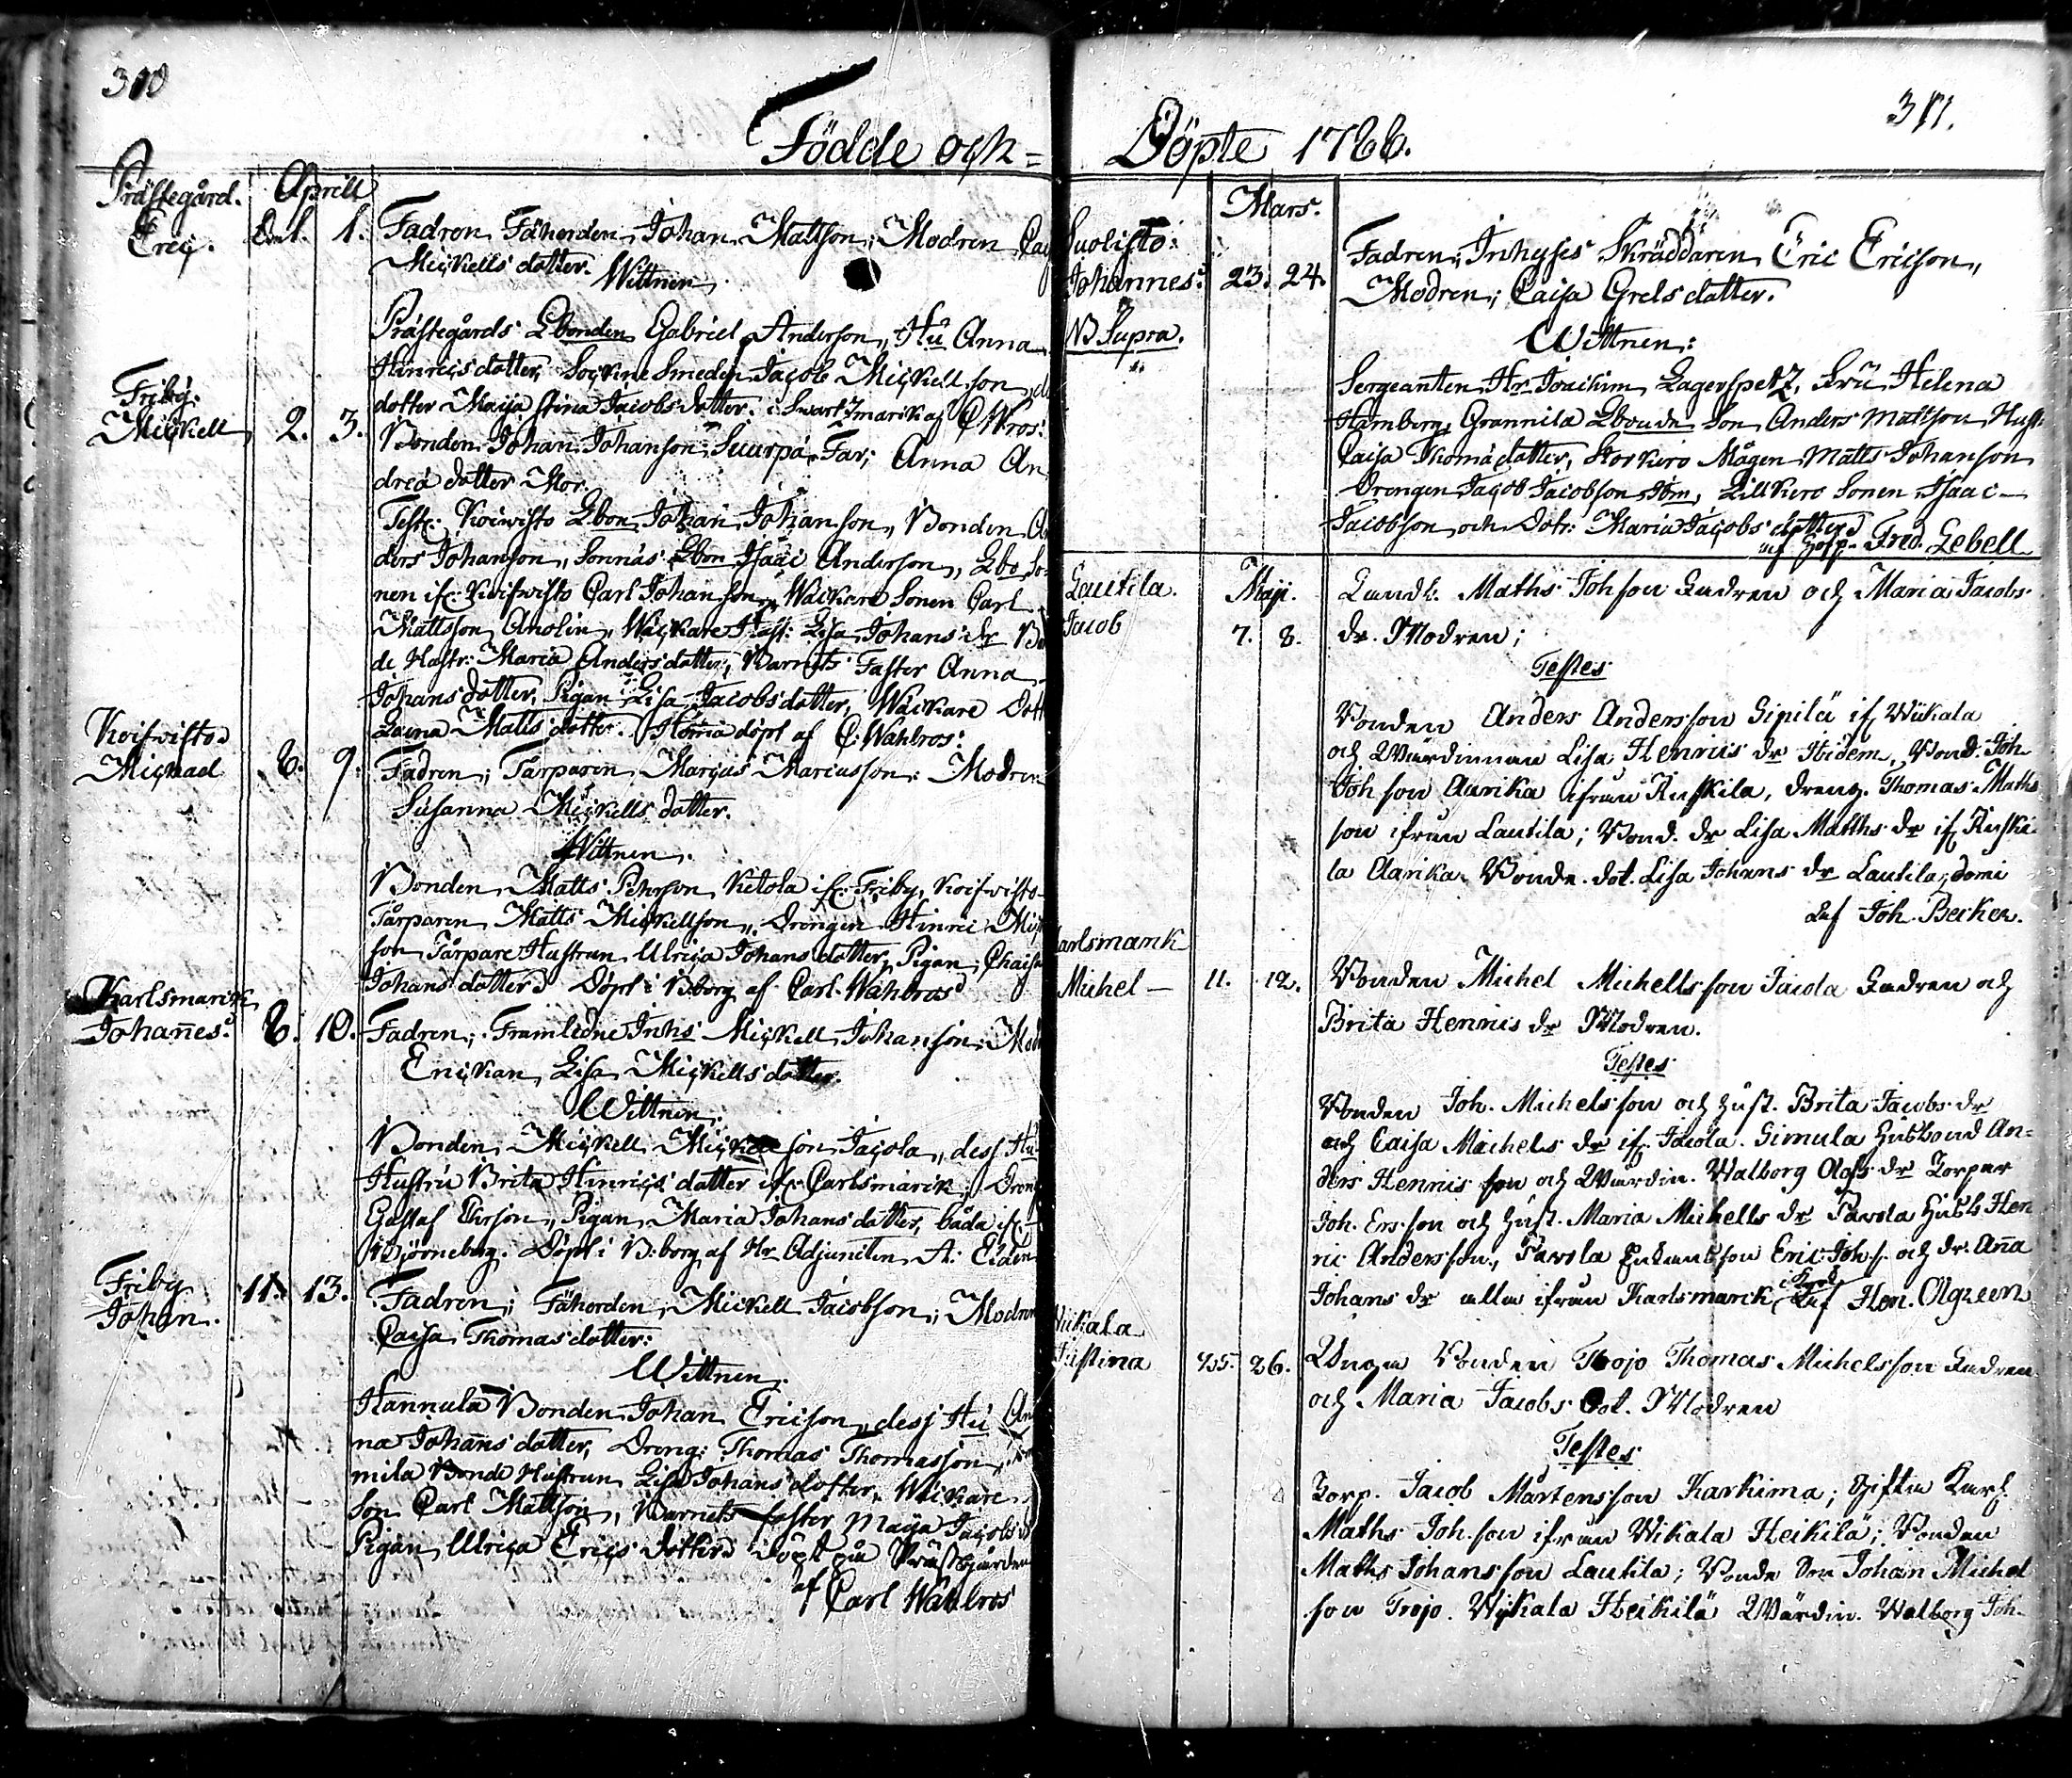 310
Födde och =
Prästegård. Aprill
Eric. 1. Fadren Fäherden Johan Mattson; Modren
Mickells dotter. Wittnen.
Prästegårds Lbonden Gabriel Anderson, Hu Anna
Hinrics dotter, Sockne Smeden Jacob Mickellson,
dotter Maija Stina Jacobs dotter. af C Wros:
Friby.
Mickell 2. 3. Bonden Johan Johanson Suurpä Far; Anna An
dreä dotter Mor.
Test: Koiwisto Lbon Johan Johanson, Bonden
ders Johanson, Sonnäs Lbon Isaac Anderson, Lbo So
nen ifr: Koifwisto Carl Johanson, Wäckare Sonen Carl
Mattsson Anolin, Wäckare Hust: Lisa Johans dr
de Hustr: Maria Anders dotter, Barnets Faster Anna
Johans dotter, Pigan Lisa Jacobs dotter, Wäckare Dott
Matts dotter. Hema döpt af C: Wahlros:
Koifwisto
Michael 8. 9. Fadren; Tarparen Marcus Marcusson: Modren
Susanna Mickells dotter.
Wittnen.
Bonden Matts Pehrson Ketola ifr: Friby, Koifwisto
Tårparen Matts Mickellson, Drengen Hinric
son Tårpare Hustrun Ulrica Johans dotter, Pigan Chaisa
Johans dotter Döpt i B:borg af Carl Wahlros
Karlsmarck
Johannes. 8. 10. Fadren; Framledne Inhs Mickell Johanson;
Enckan Lisa Mickells dotter.
Wittnen.
Bonden Mickell son Jacola, dess
Hustru Brita Hinrics dotter ifr: Carlsmarck,
Gustaf Ehrson, Pigan Maria Johans dotter, båda ifr
Björneborg. Döpt i B:borg af Hr Adjuncten A:
Friby
Johan. 11. 13. Fadren; Fäherden Mickell Jacobson; Modren
Caisa Thomas dotter:
Wittnen.
Hannula Bonden Johan Ericson, dess Hu An
na Johans dotter, Dreng: Thomas Thomasson,
mila Bonde Hustrun Lisa Johans dotter, Wäckare
Son Carl Mattson, Barnets faster Maija Jacobs
Pigan Ulrica Erics dotter döpt på Prästgården
af Carl Wahlros
311.
Döpte 1786.
Mars.
Suolisto:
Johannes. 23. 24. Fadren; Inhyses Skräddaren Eric Ericson,
Modren; Caisa Grels dotter.
NB Supra.
Wittnen:
Sergeanten Hr Joachim Lagerspetz, Fru Helena
Hamberg, Grannila Lbonde Son Anders Mattson Hust:
Caisa Thomä dotter, Storkiro Mågen Matts Johanson
Drengen Jacob Jacobson Ibm, Lillkiro Sonen Isaac
Jacobson och Dotr: Maria Jacobs dotter
af Fred. Lebell
Lautila. Maji.
Jacob 7. 8. Landb: Maths Johson Fadren och Maria Jacobs
dr. Modren;
Testes
Bonden Anders Andersson Sipilä if Wiikala
och Wärdinnan Lisa Henrics dr Ibidem, Bond. Joh
Johson Aarika ifrån Ruskila, dreng. Thomas Maths
son ifrån Lautila; Bond. dr Lisa Matths dr if Ruski
la Aarika Bonde. dot. Lisa Johans dr Lautila, domi
af Joh. Becker.
Karlsmark
Michel — 11. 12. Bonden Michel Michellsson Jacola Fadren och
Brita Hennis dr Modren.
Testes
Bonden Joh. Michelsson och Hust. Brita Jacobs dr
och Caisa Michels dr if Jacola. Simula Husbond An=
ders Hennis son och Wärdin. Walborg Olofs dr Torpar
Joh. Ersson och Hust. Maria Michells dr Pavola Husb Hen
ric Andersson, Pavola Enkans son Eric Joh.s. och dr. Anna
Johans dr alla ifrån Karlsmarck af Hen. Algreen
Wikala
Justina 25. 26. Unga Bonden Trojo Thomas Michelsson Fadren
och Maria Jacobs Dot. Modren
Testes
Torp. Jacob Mårtensson Karkima; Gifta Karl
Maths Joh.son ifrån Wikala Heikilä; Bonden
Maths Johansson Lautila; Bonde Son Johan Michel
son Trojo. Wikala Heikilä Wärdin. Walborg Joh.